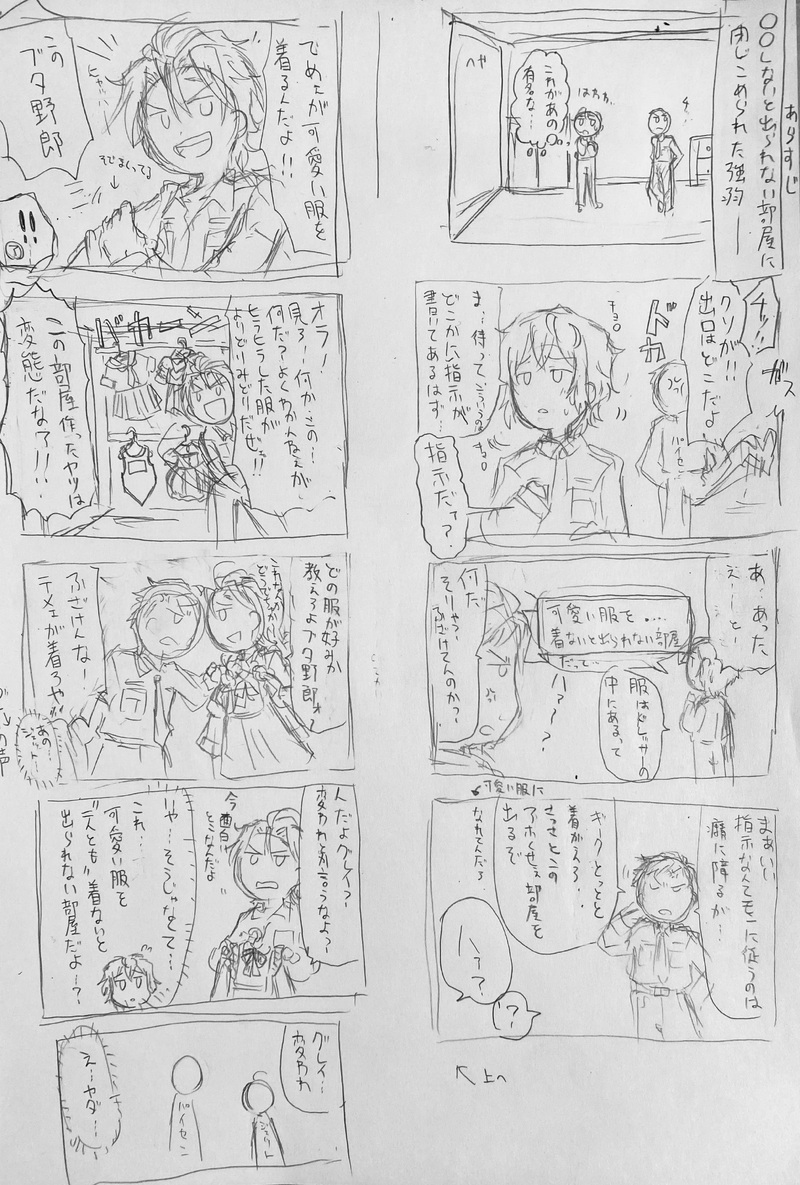 あらすじ
〇〇しないと出られない部屋に
閉じこめられた強羽━
これがあの
有名な…
へや
チッ!!
クソが!!
出口はどこだよ
ガス
ドカ
パイセン
ま…待って
こういうのは
どこかに指示が
書いてあるはず…
指示だァ?
あ、あった
えーーと…
可愛い服を….
着ないと出られない部屋
だって…
服はドレッサーの
中にあるって
ハ????
何だ
そりゃっ
ふざけてんのか?
まぁいい
指示なんてモンに従うのは
癪に障るが…
ギークとっとと
着がえろ・・
さっさとこの
アホくせぇ部屋を
出るぞ
可愛い服に
なれてんだろ
ハァ?
?
↖上へ
でめェが可愛い服を
着るんだよ!!
ヒャハハ
そでまくってる
この
ブタ野郎
オラー!
見ろー!何か、この…
何だ?よくわかんねェが
ヒラヒラした服が
よりどりみどりだぜぇ!!
この部屋作ったヤツは
変態だなァ!!
どの服が好みか
教えろよブタ野郎ォ?
ふざけんなー!
テメェが着ろや!!
あの…
ジェット…
んだよグレイ?
変われとか言うなよ?
今面白い
とこなんだよ
いや…そうじゃなくて…
これ…
可愛い服を
"二人とも"着ないと
出られない部屋だよ…?
グレイ…
変われ
え…ヤダ…
パイセン
ジェット